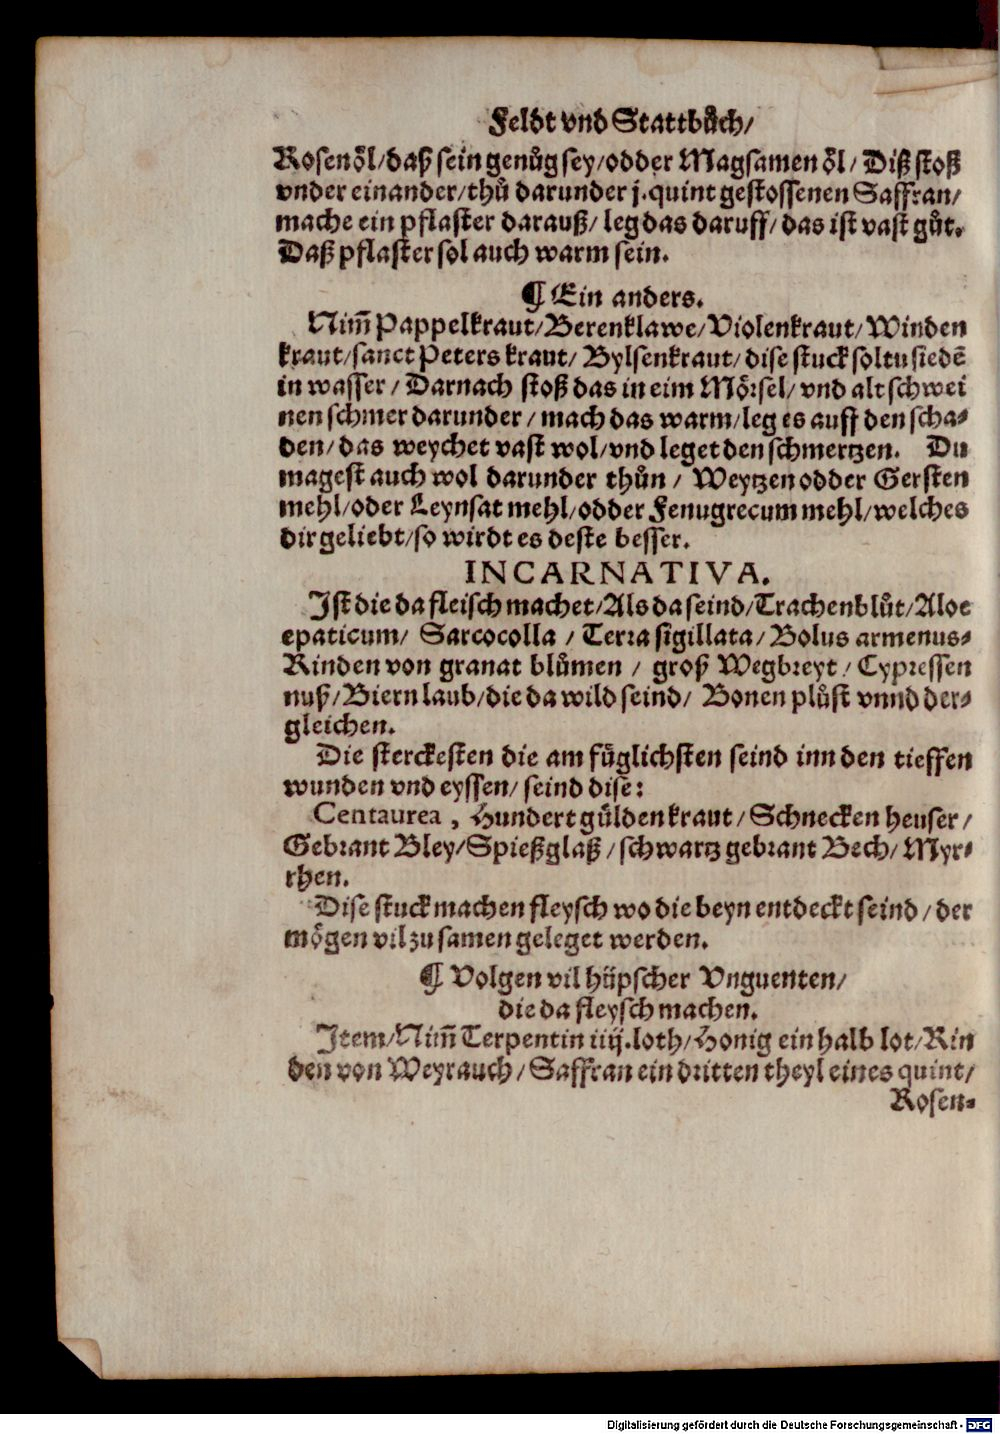 Feldt vnd Stattbůch/
Rosenöl/daß sein genůg sey/odder Magsamen öl/ Diß stoß
vnder einander/thů darunder j.quint gestossenen Saffran/
mache ein pflaster darauß/ leg das daruff/das ist vast gůt.
Daß pflaster sol auch warm sein.
¶ Ein anders.
Nim̄ Pappelkraut/Berenklawe/Violenkraut/Winden
kraut/sanct Peters kraut/ Bylsenkraut/dise stuck soltu siedē
in wasser/ Darnach stoß das in eim Mörsel/ vnd alt schwei
nen schmer darunder/ mach das warm/leg es auff den scha-
den/das weychet vast wol/vnd leget den schmertzen. Du
magest auch wol darunder thůn/ Weytzen odder Gersten
mehl/oder Leynsat mehl/odder Fenugrecum mehl/welches
dir geliebt/so wirdt es deste besser.
INCARNATIVA.
Jst die da fleisch machet/Als da seind/Trachenblůt/Aloe
epaticum/ Sarcocolla/ Terra sigillata/ Bolus armenus-
Rinden von granat blůmen/ groß Wegbreyt/ Cypressen
nuß/Biern laub/die da wild seind/ Bonen plůst vnnd der-
gleichen.
Die sterckesten die am füglichsten seind inn den tieffen
wunden vnd eyssen/ seind dise:
Centaurea, Hundert gülden kraut/Schnecken heuser/
Gebrant Bley/Spießglaß/schwartz gebrant Bech/ Myr-
rhen.
Dise stuck machen fleysch wo die beyn entdeckt seind/der
mögen vil zu samen geleget werden.
¶ Volgen vil hüpscher Vnguenten/
die da fleysch machen.
Jtem/Nim̄ Terpentin iiij.loth/Honig ein halb lot/Rin
den von Weyrauch/Saffran ein dritten theyl eines quint/
Rosen-
Digitalisierung gefördert durch die Deutsche Forschungsgemeinschaft - DFG